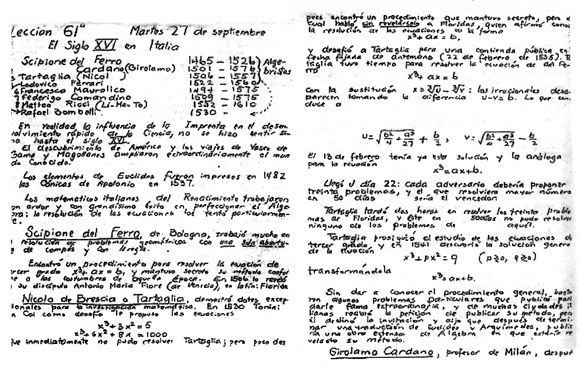 Leccion 61ª Martes 27 de septiembre
El Siglo XVI en Italia
Scipione del Ferro 1465 - 1526
Cardano (Girolamo) 1501 - 1576
Tartaglia (Nicol
Francesco Maurolico 1494 - 1575
Federigo Comandino 1509 - 1575
Matteo Ricci (Li-Ma-To) 1552 - 1610
Rafael Bombelli 1530 -
En realidad la influencia de la Imprenta en el desa
rrollo rápido de la Ciencia, no se hizo sentir
hasta el siglo XVI.
El descubrimiento de América y los viajes de Vasco de
Gama y Magallanes ampliaron extraordinariamente el mun
do conocido.
Los elementos de Euclides fueron impresos en 1482
las Cónicas de Apolonio en 1537.
Los matemáticos italianos del Renacimiento trabajaron
con ardor y con grandísimo éxito en perfeccionar el Alge
bra; la resolución de las ecuaciones los tentó particularmen
Scipione del Ferro, de Bologna, trabajó mucho en
la resolución de problemas geométricos con una sola abertu
ra de compás y la Regla.
Encontró un procedimiento para resolver la ecuación de
tercer grado x³+ax=b, y mantuvo secreto su método
las costumbres de época. En 1506 lo reveló
a su discípulo Antonio Maria Fiore (de Venecia), en latín: Florida
Nicolo de Brescia o Tartaglia, demostró dotes excep
cionales para la investigación matemática. En 1530
Coi como desafío le propuso las ecuaciones
x³+3x²=5
x³+6x²+8x=1000
que inmediatamente no pudo resolver Tartaglia; pero poco des
pués encontró un procedimiento que mantuvo secreto, pero
cual habló, sin revelárselo a Floridas, quien afirmó conocer
la resolución de las ecuaciones de la forma
x³+ax=b,
y desafió a Tartaglia para una contienda pública en
fecha fijada de antemano (22 de febrero de 1535).
taglia tuvo tiempo para resolver la ecuación de del Fe
rro x³+ax=b.
Con la sustitución x=∛u-∛v: las irracionales desa
parecen tomando la diferencia u-v=b. Lo que con
duce a
u=√(b²/4+a³/27)+b/2, v=√(b²/4+a³/27)-b/2
El 13 de febrero tenía ya esta solución y la análoga
para la ecuación
x³=ax+b.
Llegó el día 22: cada adversario debería proponer
treinta problemas, y el que resolviera mayor número
en 50 días sería el vencedor.
Tartaglia tardó dos horas en resolver los treinta proble
mas de Floridas y éste en 50 días no pudo resolver
ninguno de los problemas de aquel.
Tartaglia prosiguió el estudio de las ecuaciones de
tercer grado, y en 1541 descubrió la solución general
de la ecuación
x³±px²=q (p≥0, q≥0)
transformándola
x³±ax=b.
Sin dar a conocer el procedimiento general, bastaron
algunos problemas particulares que publicó para
darle fama extraordinaria, y de muchas ciudades ita
lianas recibió la petición de publicar su método, pero
él declinó la invitación y dijo que después de termi
nar una traducción de Euclides y Arquímedes, publica
ría una obra extensa de Algebra en que estaría re
velado su método.
Girolamo Cardano, profesor de Milán, despué